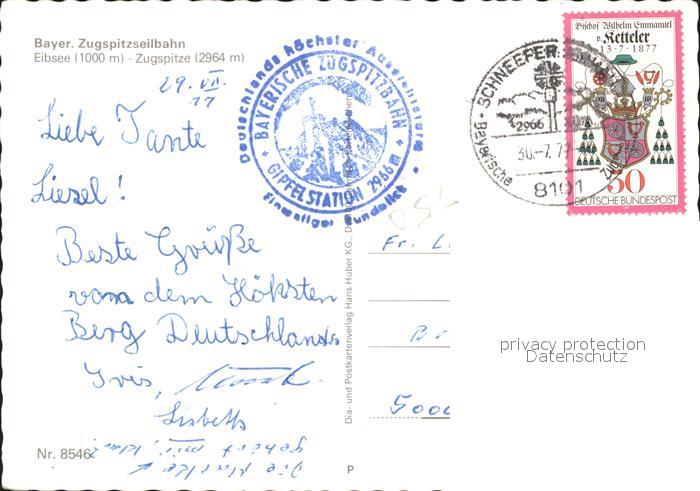 Bayer. Zugspitzseilbahn
Eibsee (1000 m) - Zugspitze (2964 m)
29. VII.
77
Liebe Tante
Liesel!
Beste Grüße
vom dem Höksten
Berg Deutschlands
Iris,
Lisbeth
Die Marke
gehört mir, klar?
Nr. 8546
Deutschlands höchster Aussichtsturm
BAYERISCHE ZUGSPITZBAHN
GIPFELSTATION 2966 m
Einmaliger Rundblick
Dia- und Postkartenverlag Hans Huber KG.,
P
SCHNEEFERNER
2966
30.-7.77
Bayerische
8101
Bischof Wilhelm Emmanuel
v. Ketteler
13·7·1877
30
DEUTSCHE BUNDESPOST
Fr. L.
5000
privacy protection
Datenschutz